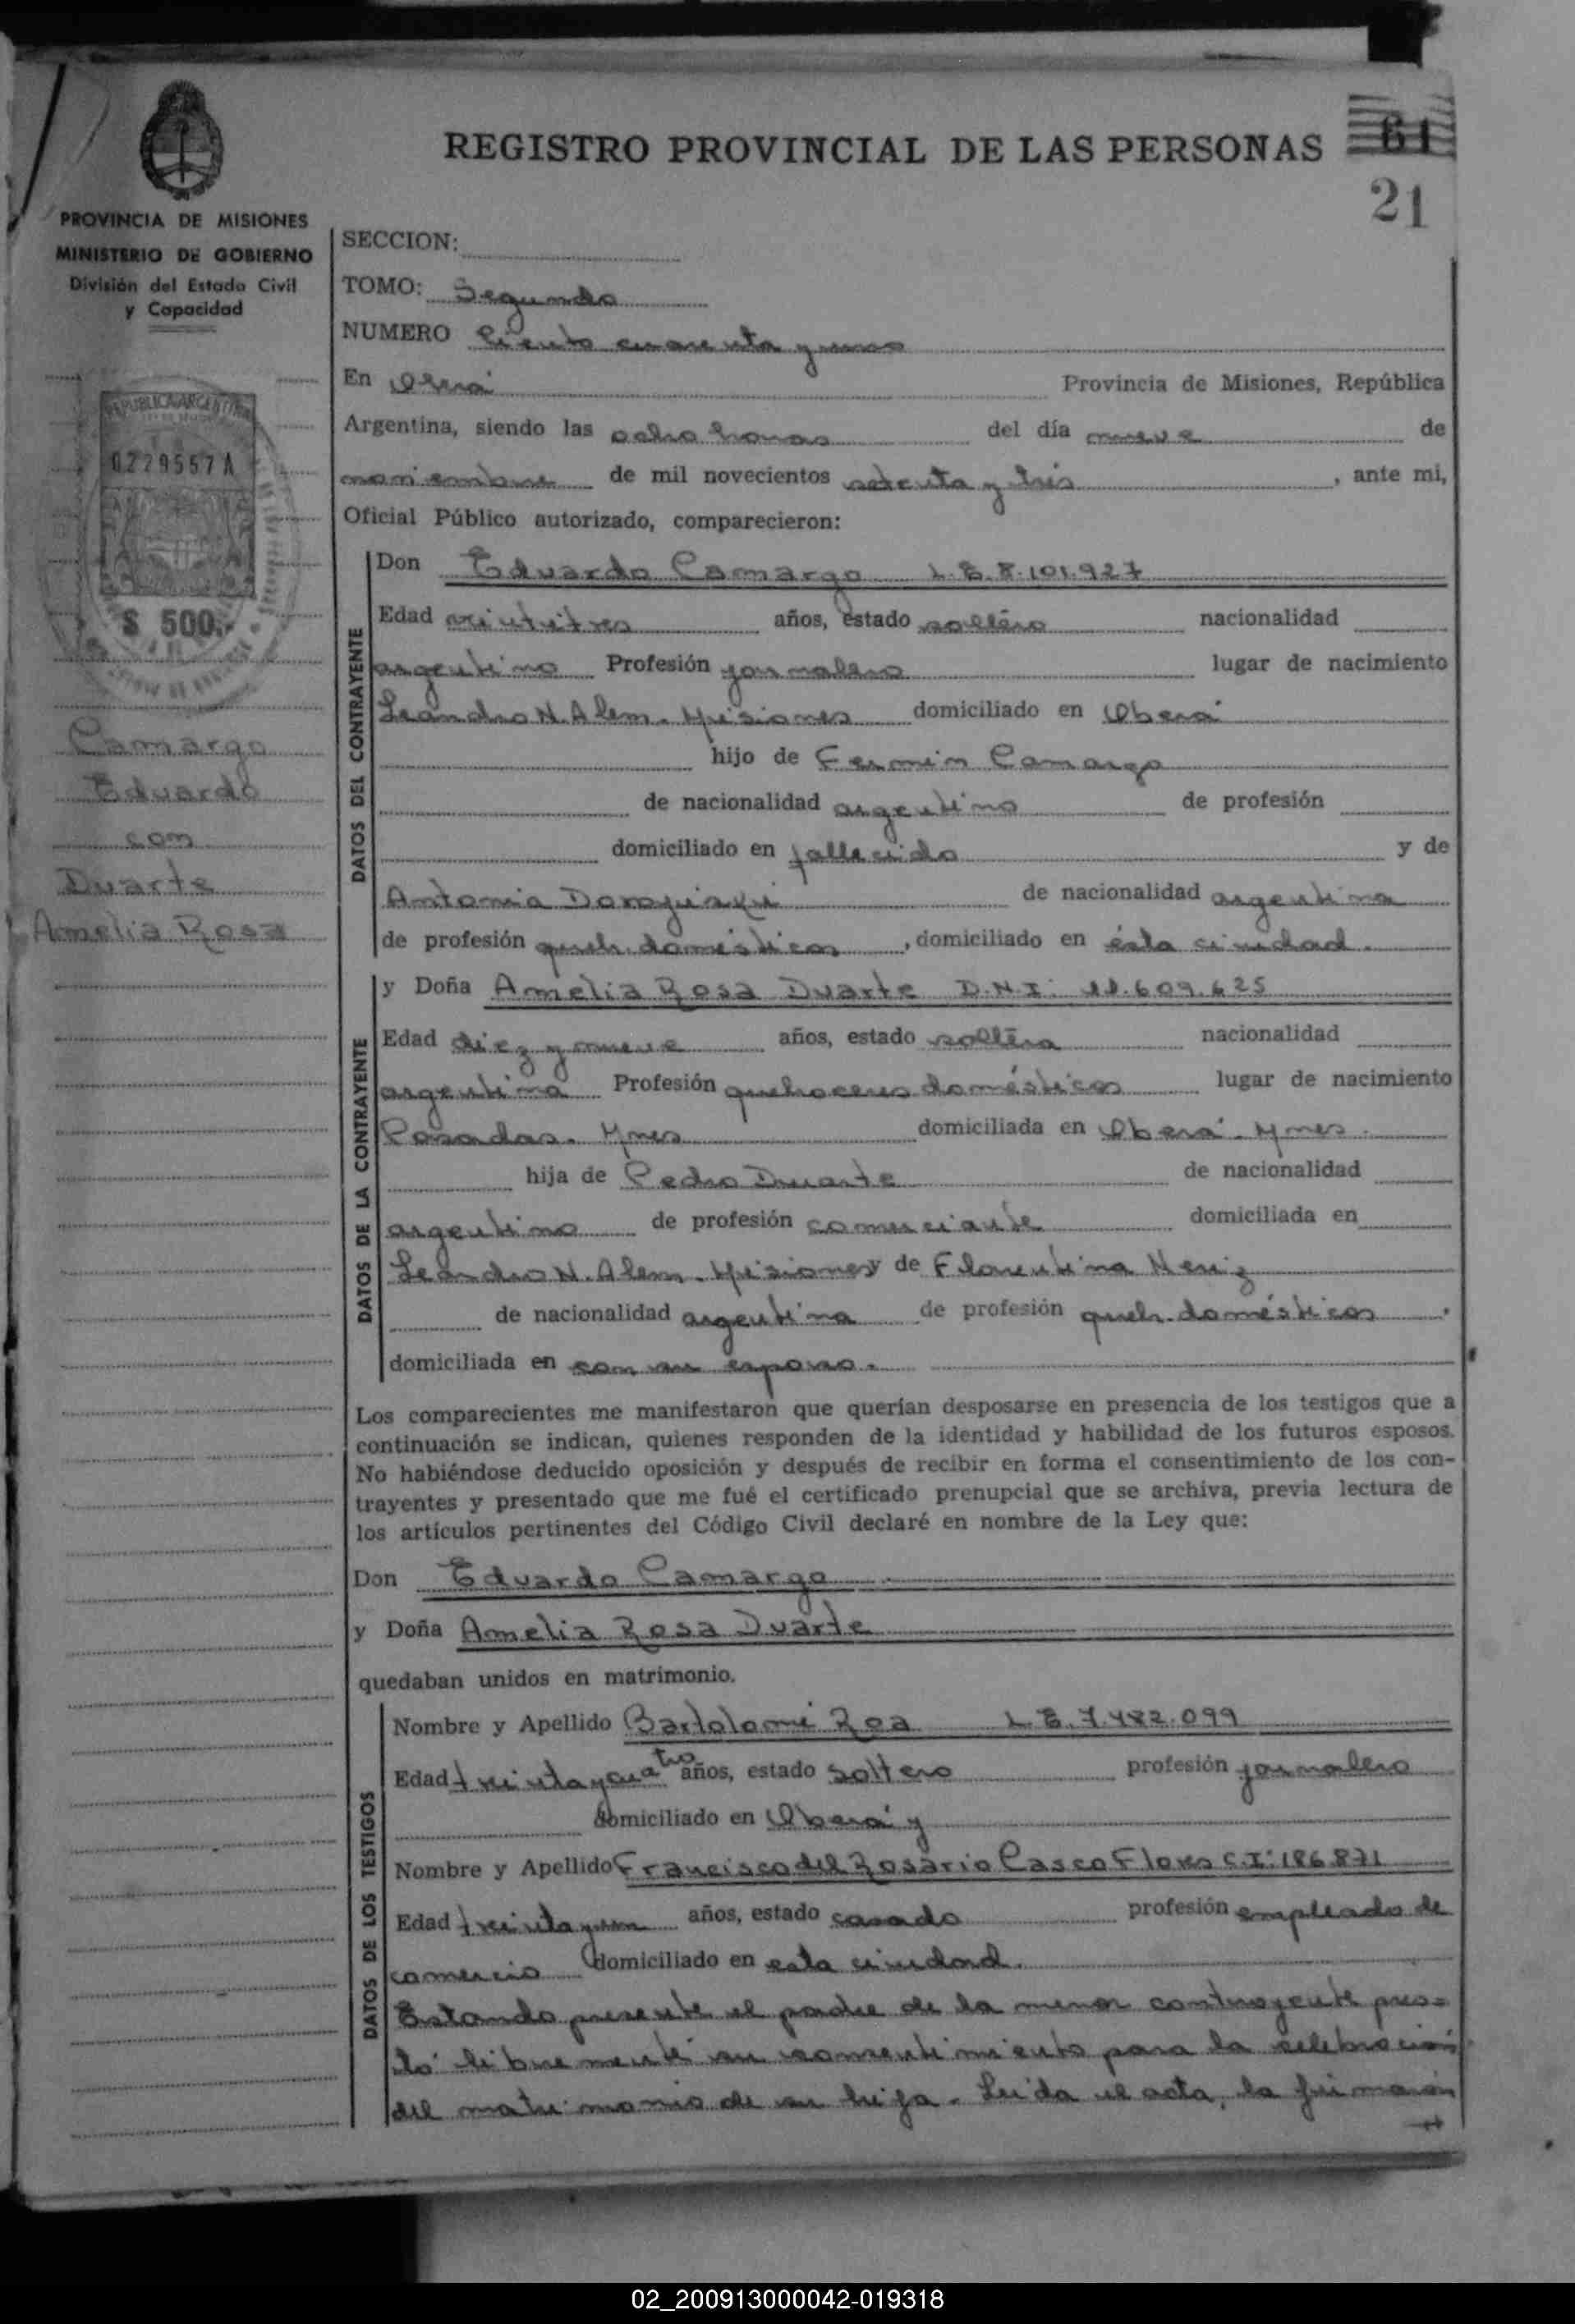 REGISTRO PROVINCIAL DE LAS PERSONAS
61
21
PROVINCIA DE MISIONES
MINISTERIO DE GOBIERNO
División del Estado Civil
y Capacidad
REPUBLICA ARGENTINA
0229557 A
$ 500.-
Camargo
Eduardo
con
Duarte
Amelia Rosa
SECCION:
TOMO: Segundo
NUMERO Ciento cuarenta y uno
En Oberá Provincia de Misiones, República
Argentina, siendo las ocho horas del día nueve de
noviembre de mil novecientos setenta y tres, ante mi,
Oficial Público autorizado, comparecieron:
DATOS DEL CONTRAYENTE
Don Eduardo Camargo L.E. 8.101.927
Edad veintitres años, estado soltero nacionalidad
argentino Profesión jornalero lugar de nacimiento
Leandro N. Alem. Misiones domiciliado en Oberá
hijo de Fermin Camargo
de nacionalidad argentino de profesión
domiciliado en fallecido y de
Antonia de nacionalidad argentina
de profesión queh. domésticos, domiciliado en ésta ciudad.
DATOS DE LA CONTRAYENTE
y Doña Amelia Rosa Duarte D.N.I. 11.609.625
Edad diez y nueve años, estado soltera nacionalidad
argentina Profesión quehaceres domésticos lugar de nacimiento
Posadas. Mnes domiciliada en Oberá. Mnes.
hija de Pedro Duarte de nacionalidad
argentino de profesión comerciante domiciliada en
Leandro N. Alem. Misiones y de Florentina Neriz
de nacionalidad argentina de profesión queh. domésticos.
domiciliada en con su esposo.
Los comparecientes me manifestaron que querían desposarse en presencia de los testigos que a
continuación se indican, quienes responden de la identidad y habilidad de los futuros esposos.
No habiéndose deducido oposición y después de recibir en forma el consentimiento de los con-
trayentes y presentado que me fué el certificado prenupcial que se archiva, previa lectura de
los artículos pertinentes del Código Civil declaré en nombre de la Ley que:
Don Eduardo Camargo
y Doña Amelia Rosa Duarte
quedaban unidos en matrimonio.
DATOS DE LOS TESTIGOS
Nombre y Apellido Bartolomé Roa L.E. 7.482.099
Edad treinta y cuatro años, estado soltero profesión jornalero
domiciliado en Oberá y
Nombre y Apellido Francisco del Rosario Casco Flores C.I: 186.871
Edad treinta y un años, estado casado profesión empleado de
comercio domiciliado en esta ciudad.
Estando presente el padre de la menor contrayente pres=
tó libremente su consentimiento para la celebración
del matrimonio de su hija. Leída el acta, la firmaron
02_200913000042-019318